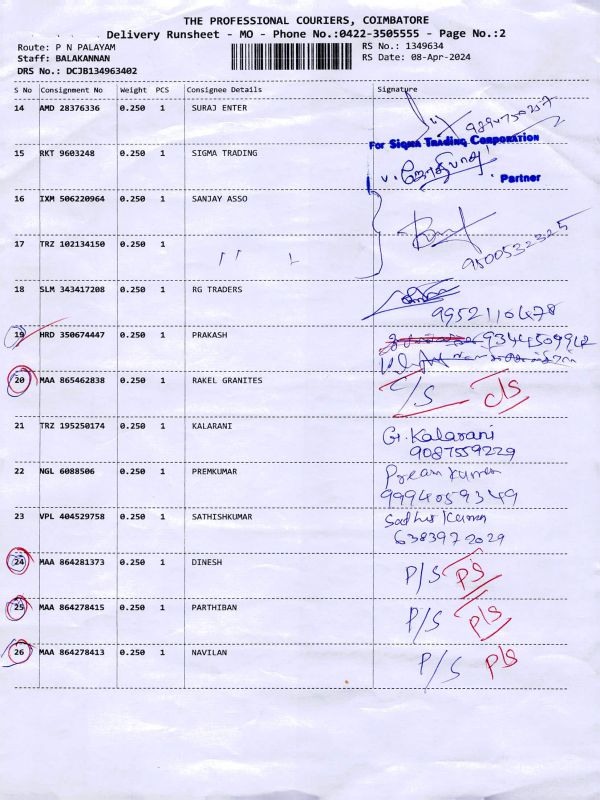 THE PROFESSIONAL COURIERS, COIMBATORE
Delivery Runsheet - MO - Phone No.:0422-3505555 - Page No.:2
Route: P N PALAYAM RS No.: 1349634
Staff: BALAKANNAN RS Date: 08-Apr-2024
DRS No.: DCJB134963402
S No Consignment No Weight PCS Consignee Details Signature
14 AMD 28376336 0.250 1 SURAJ ENTER
15 RKT 9603248 0.250 1 SIGMA TRADING
For SIGMA TRADING CORPORATION
Partner
16 IXM 506220964 0.250 1 SANJAY ASSO
17 TRZ 102134150 0.250 1
9500532325
18 SLM 343417208 0.250 1 RG TRADERS
9952110478
19 HRD 350674447 0.250 1 PRAKASH 9344509942
20 MAA 865462838 0.250 1 RAKEL GRANITES C/S C/S
21 TRZ 195250174 0.250 1 KALARANI G. Kalarani
9087559229
22 NGL 6088506 0.250 1 PREMKUMAR Prem kumar
9994059349
23 VPL 404529758 0.250 1 SATHISHKUMAR Sathis Kumar
6383972029
24 MAA 864281373 0.250 1 DINESH P/S P/S
25 MAA 864278415 0.250 1 PARTHIBAN P/S P/S
26 MAA 864278413 0.250 1 NAVILAN P/S P/S